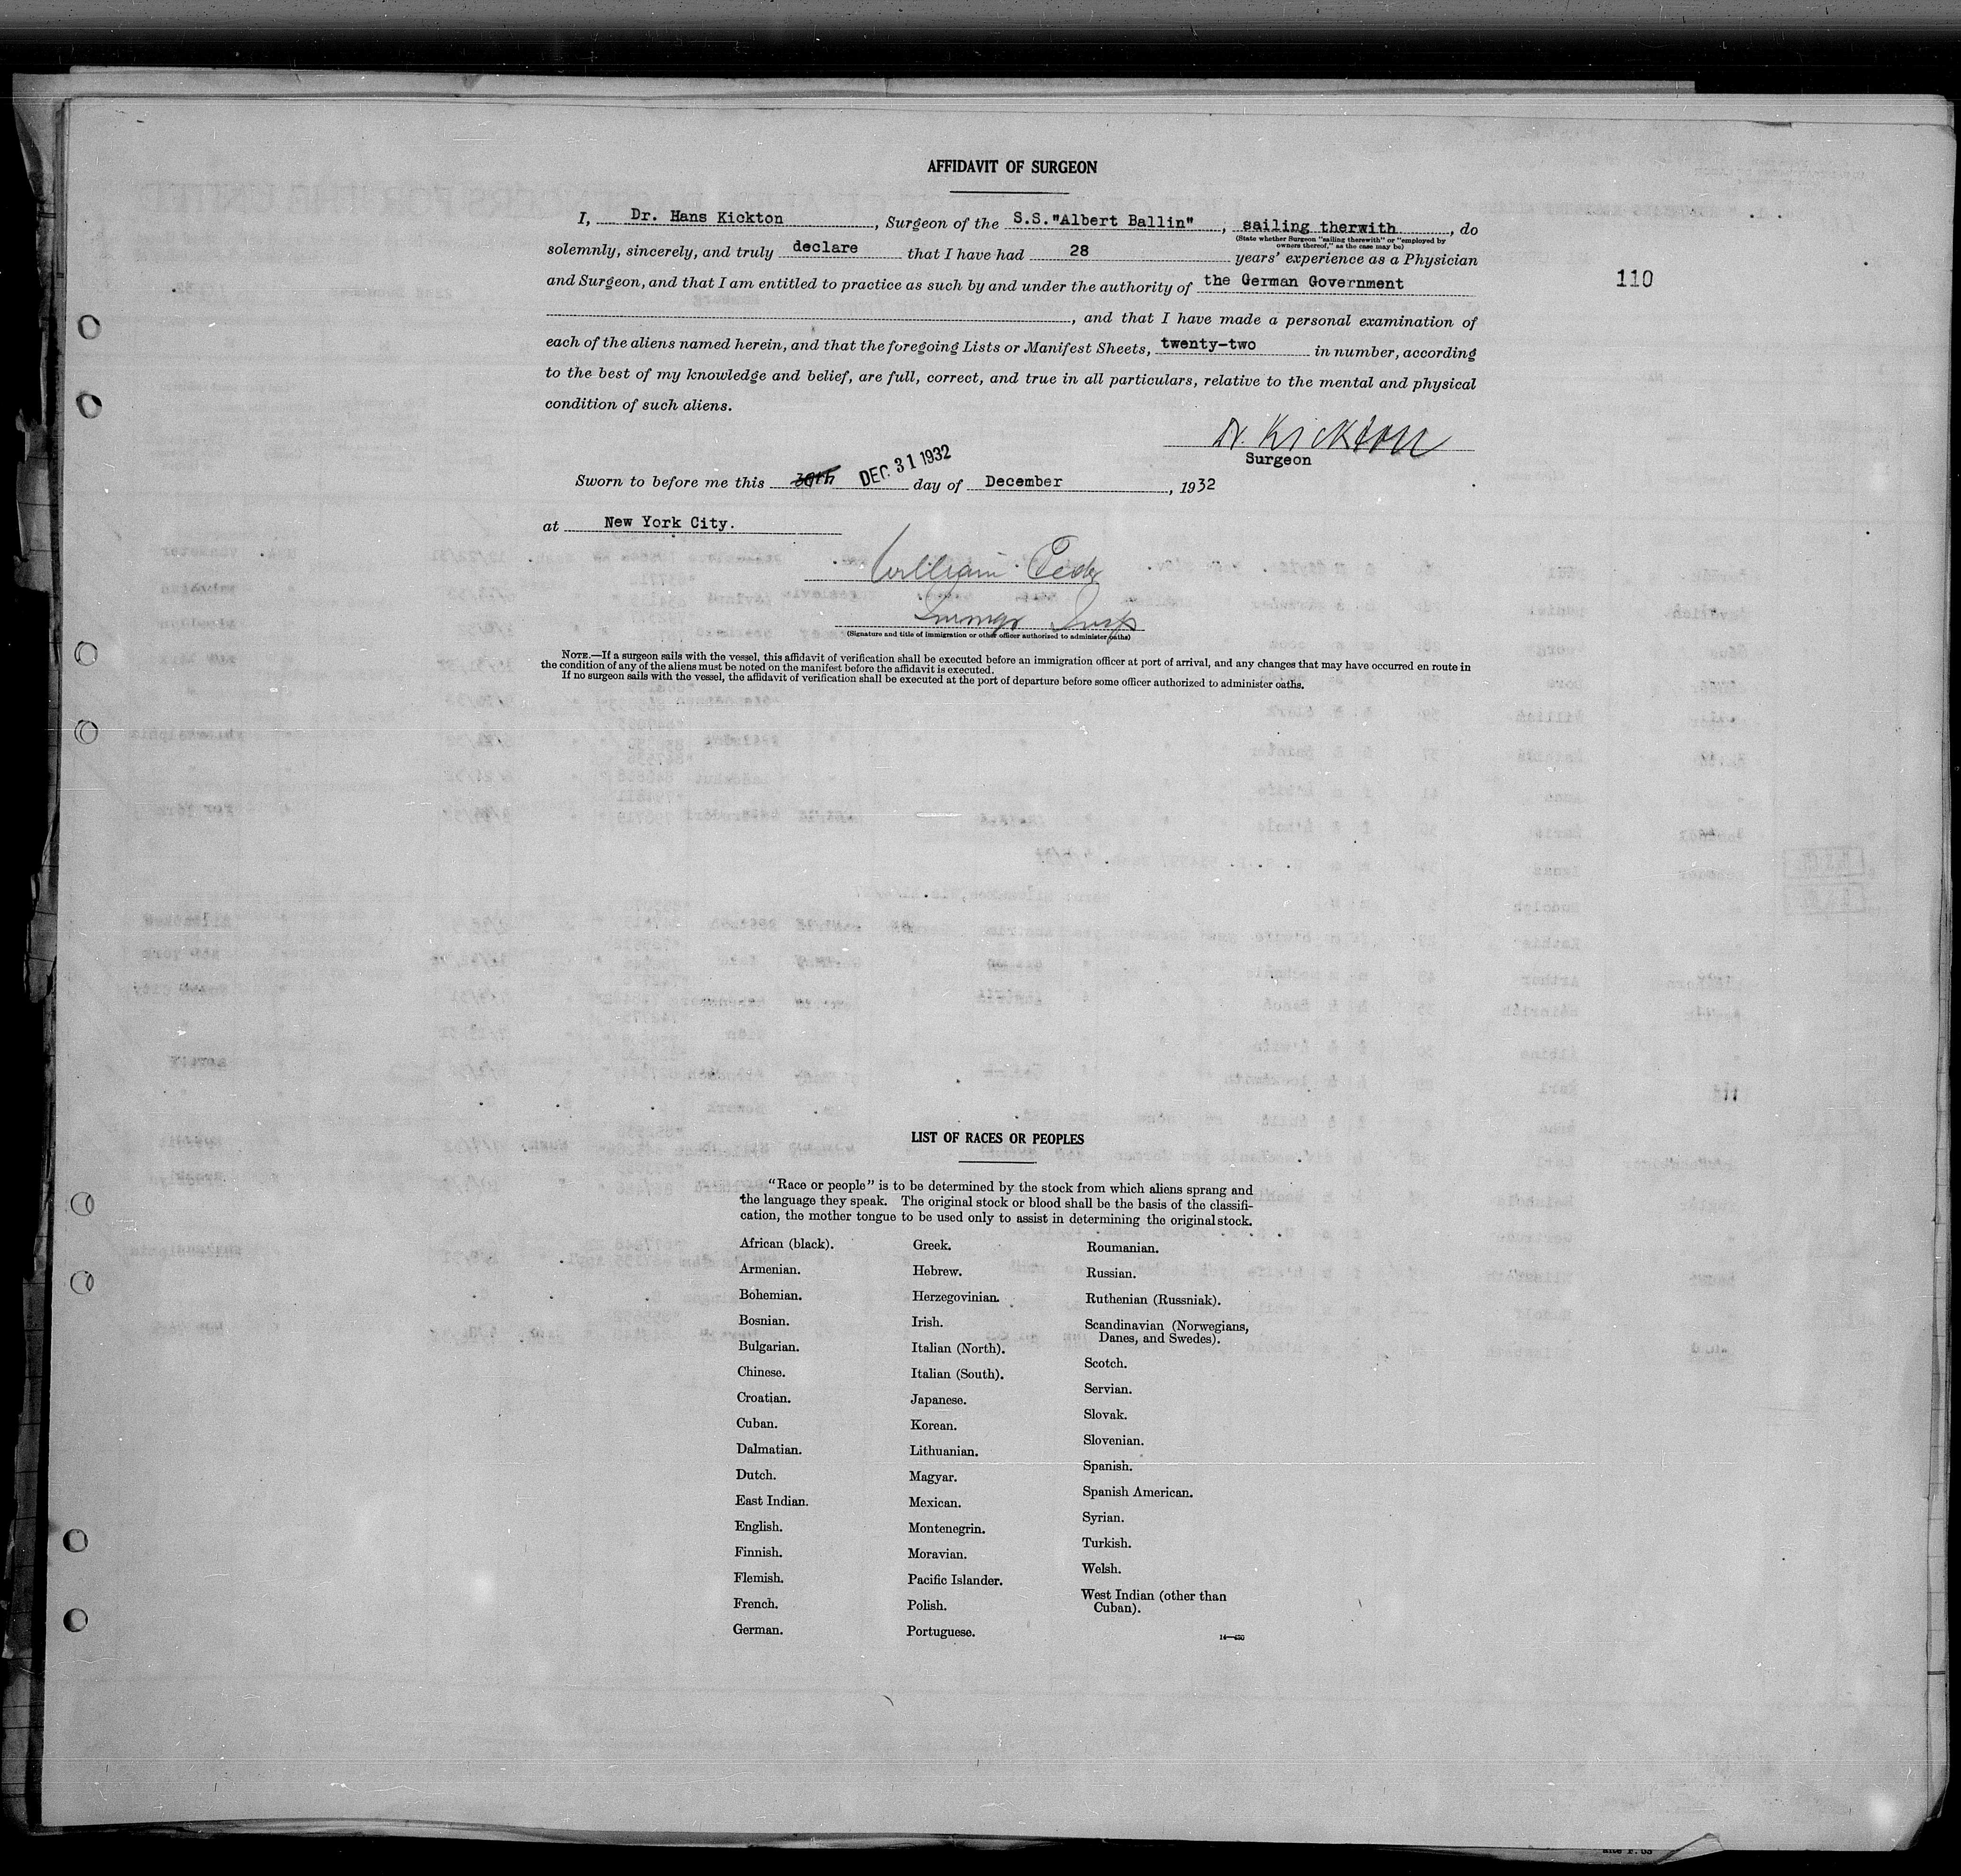 AFFIDAVIT OF SURGEON
I, Dr. Hans Kickton, Surgeon of the S.S."Albert Ballin", sailing therwith, do
(State whether Surgeon "sailing therewith" or "employed by
owners thereof," as the case may be)
solemnly, sincerely, and truly declare that I have had 28 years' experience as a Physician
110
and Surgeon, and that I am entitled to practice as such by and under the authority of the German Government
, and that I have made a personal examination of
each of the aliens named herein, and that the foregoing Lists or Manifest Sheets, twenty-two in number, according
to the best of my knowledge and belief, are full, correct, and true in all particulars, relative to the mental and physical
condition of such aliens.
Dr. Kickton
Surgeon
Sworn to before me this 30th DEC 31 1932 day of December, 1932
at New York City.
William
(Signature and title of immigration or other officer authorized to administer oaths)
NOTE.—If a surgeon sails with the vessel, this affidavit of verification shall be executed before an immigration officer at port of arrival, and any changes that may have occurred en route in
the condition of any of the aliens must be noted on the manifest before the affidavit is executed.
If no surgeon sails with the vessel, the affidavit of verification shall be executed at the port of departure before some officer authorized to administer oaths.
LIST OF RACES OR PEOPLES
"Race or people" is to be determined by the stock from which aliens sprang and
the language they speak. The original stock or blood shall be the basis of the classifi-
cation, the mother tongue to be used only to assist in determining the original stock.
African (black).
Armenian.
Bohemian.
Bosnian.
Bulgarian.
Chinese.
Croatian.
Cuban.
Dalmatian.
Dutch.
East Indian.
English.
Finnish.
Flemish.
French.
German.
Greek.
Hebrew.
Herzegovinian.
Irish.
Italian (North).
Italian (South).
Japanese.
Korean.
Lithuanian.
Magyar.
Mexican.
Montenegrin.
Moravian.
Pacific Islander.
Polish.
Portuguese.
Roumanian.
Russian.
Ruthenian (Russniak).
Scandinavian (Norwegians,
Danes, and Swedes).
Scotch.
Servian.
Slovak.
Slovenian.
Spanish.
Spanish American.
Syrian.
Turkish.
Welsh.
West Indian (other than
Cuban).